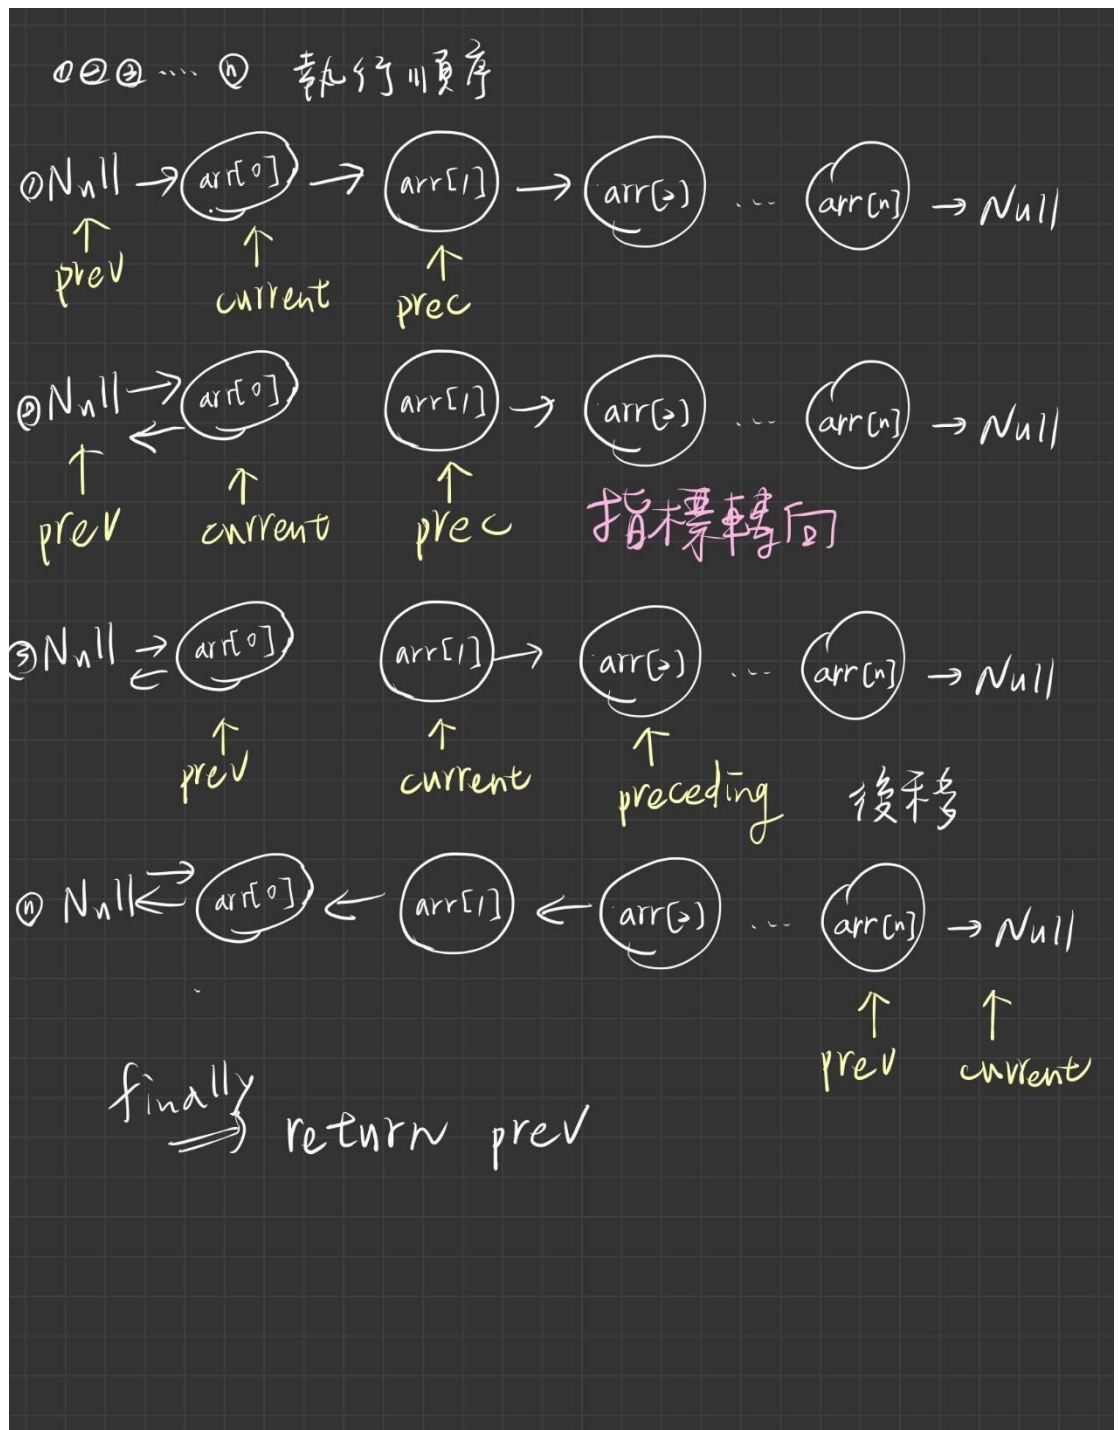 ①②③....ⓝ 執行順序
①Null → arr[0] → arr[1] → arr[2] ... arr[n] → Null
↑ ↑ ↑
prev current prec
②Null → ← arr[0] arr[1] → arr[2] ... arr[n] → Null
↑ ↑ ↑
prev current prec 指標轉向
③Null → ← arr[0] arr[1] → arr[2] ... arr[n] → Null
↑ ↑ ↑
prev current preceding 後移
ⓝ Null → ← arr[0] ← arr[1] ← arr[2] ... arr[n] → Null
↑ ↑
prev current
finally
⇒ return prev